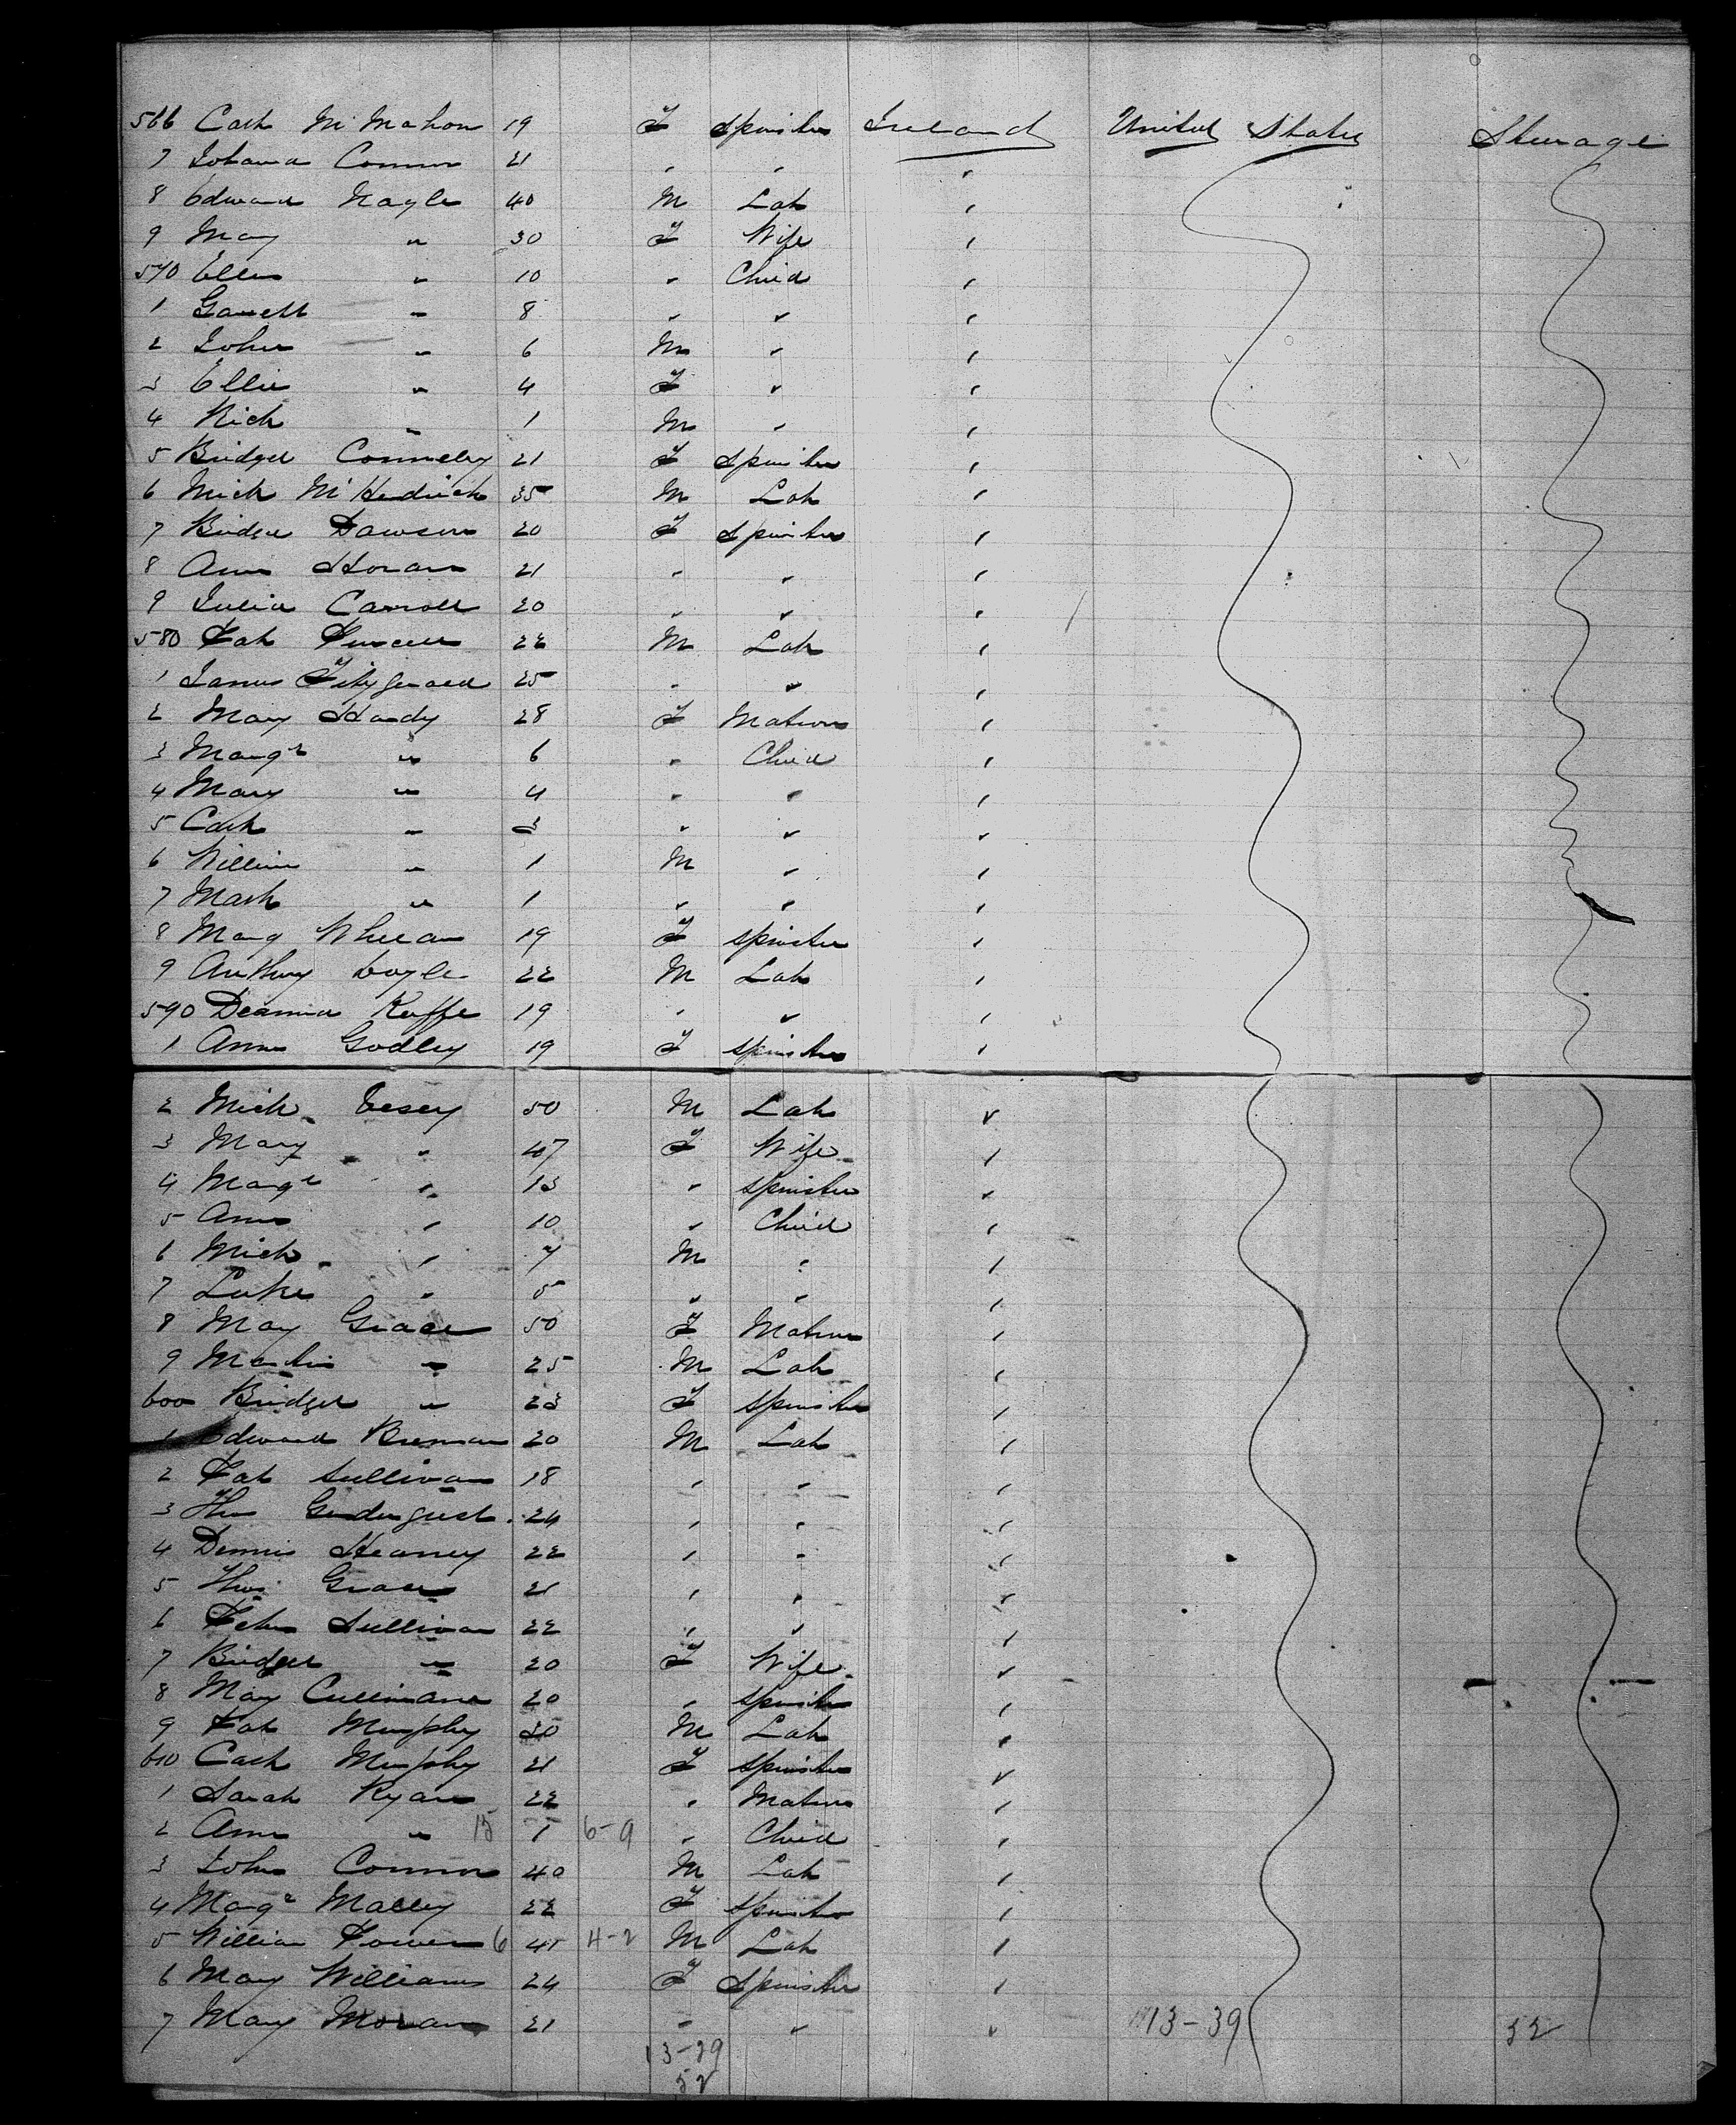 566 Cath McMahon 19 F Spinster Ireland United States Steerage
7 Johanna Connor 21 " " "
8 Edward Nagle 40 M Lab "
9 Mary " 30 F Wife "
570 Ellen " 10 " Child "
1 Garrett " 8 " " "
2 John " 6 M " "
3 Ellie " 4 F " "
4 Rich " 1 M " "
5 Bridget Conneley 21 F Spinster "
6 Mich 35 M Lab "
7 Bridget Dawson 20 F Spinster "
8 Ann Horan 21 " " "
9 Julia Carroll 20 " " "
580 Pat Purcell 22 M Lab "
1 James Fitzgerald 25 " " "
2 Mary Hardy 28 F Matron "
3 Margt " 6 " Child "
4 Mary " 4 " " "
5 Cath " 3 " " "
6 William " 1 M " "
7 Mark " 1 " " "
8 Mary Whelan 19 F Spinster "
9 Anthony Coyle 22 M Lab "
590 19 " " "
1 Ann Godley 19 F Spinster "
2 Mich 50 M Lab "
3 Mary " 47 F Wife "
4 Margt " 13 " Spinster "
5 Ann " 10 " Child "
6 Mich " 7 M " "
7 Luke " 5 " " "
8 Mary Grace 50 F Matron "
9 Martin " 25 M Lab "
600 Bridget " 23 F Spinster "
1 Edward Brennan 20 M Lab "
2 Pat Sullivan 18 " " "
3 Thos 24 " " "
4 Dennis Heaney 22 " " "
5 Thos Grace 21 " " "
6 Peter Sullivan 22 " " "
7 Bridget " 20 F Wife "
8 Mary Cullinane 20 " Spinster "
9 Pat Murphy 30 M Lab "
610 Cath Murphy 21 F Spinster "
1 Sarah Ryan 22 " Matron "
2 Ann " 15 1 6-9 " Child "
3 John Connor 40 M Lab "
4 Margt Malley 22 F Spinster "
5 William Power 6 45 4-2 M Lab "
6 Mary Williams 24 F Spinster "
7 Mary Moran 21 " " " 13-39 52
13-39
52